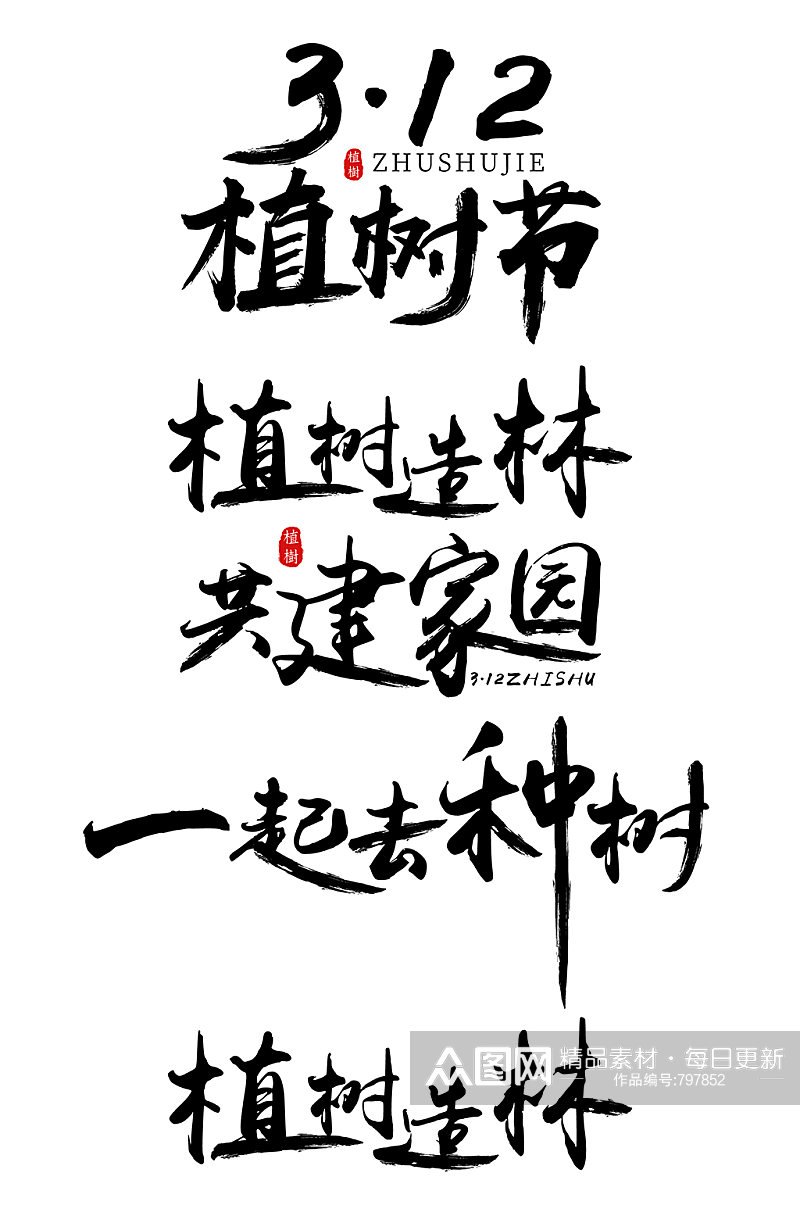 3·12
植樹 ZHUSHUJIE
植树节
植树造林
植樹
共建家园
3·12ZHISHU
一起去种树
植树造林
众图网 精品素材·每日更新
作品编号:797852